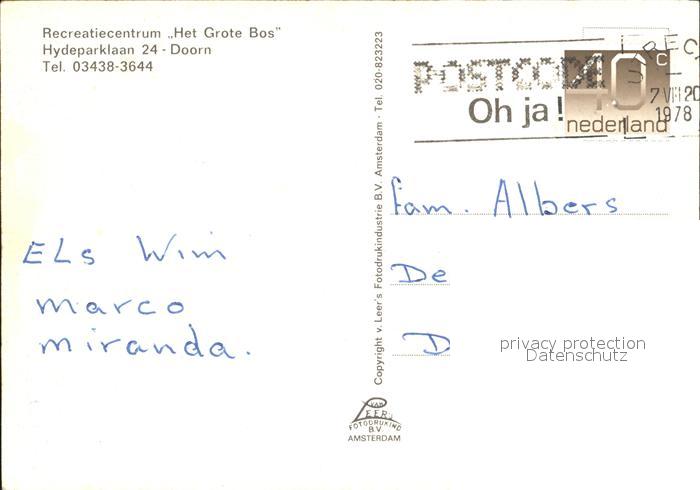 Recreatiecentrum „Het Grote Bos"
Hydeparklaan 24 - Doorn
Tel. 03438-3644
ELs Wim
marco
miranda.
Copyright v. Leer's Fotodrukindustrie B.V. Amsterdam - Tel. 020-823223
VAN
LEER's
FOTODRUKIND
B.V.
AMSTERDAM
POSTCODE
Oh ja!
40 c
nederland
1978
fam. Albers
De
D
privacy protection
Datenschutz